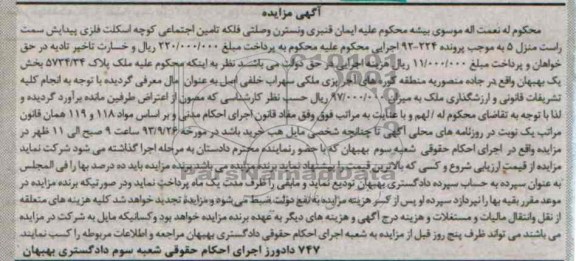 آگهی مزایده
محکوم له نعمت اله موسوی بیشه محکوم علیه ایمان قنبری ونسترن وصلتی فلکه تامین اجتماعی کوچه اسکلت فلزی پیدایش سمت
راست منزل ۵ به موجب پرونده ۲۲۴-۹۲ اجرایی محکوم علیه محکوم به پرداخت مبلغ ۲۲۰/۰۰۰/۰۰۰ ریال و خسارت تاخیر تادیه در حق
خواهان و پرداخت مبلغ ۱۱/۰۰۰/۰۰۰ ریال هزینه اجرایی در حق دولت می باشد نظر به اینکه محکوم علیه ملک پلاک ۵۷۳۴/۳۴ بخش
یک بهبهان واقع در جاده منصوریه منطقه کوره های آجرپزی ملکی سهراب خلفی اصل به عنوان مال معرفی گردیده با توجه به انجام کلیه
تشریفات قانونی و ارزشگذاری ملک به میزان ۹۷/۰۰۰/۰۰۰ ریال حسب نظر کارشناسی که مصون از اعتراض طرفین مانده برآورد گردیده و
لذا با توجه به تقاضای محکوم له /لهم و با عنایت به مراتب فوق وفق مفاد قانون اجرای احکام مدنی و بر اساس مواد ۱۱۸ و ۱۱۹ همان قانون
مراتب یک نوبت در روزنامه های محلی آگهی تا چنانچه شخصی مایل به خرید باشد در مورخه ۹۳/۹/۲۶ ساعت ۹ صبح الی ۱۱ ظهر در
مزایده واقع در اجرای احکام حقوقی شعبه سوم بهبهان که با حضور نماینده محترم دادستان به مرحله اجرا گذاشته می شود شرکت نماید
مزایده از قیمت ارزیابی شروع و کسی که بالاترین قیمت را پیشنهاد نماید برنده مزایده می باشد برنده مزایده باید ده درصد بها را فی المجلس
به عنوان سپرده به حساب سپرده دادگستری بهبهان تودیع نماید و مابقی را ظرف مدت یک ماه پرداخت نماید ودر صورتیکه برنده مزایده در
موعد مقرر بقیه بها را نپردازد سپرده او پس از کسر هزینه مزایده به نفع دولت ضبط می شود و مزایده تجدید خواهد شد کلیه هزینه های متعلقه
از نقل وانتقال مالیات و مستغلات و هزینه درج آگهی و هزینه های دیگر به عهده برنده مزایده خواهد بود وکسانیکه مایل به شرکت در مزایده
می باشند می تواند ظرف پنج روز قبل از مزایده به شعبه اجرای احکام حقوقی دادگستری بهبهان مراجعه و اطلاعات مربوطه را کسب نمایند
۷۴۷ دادورز اجرای احکام حقوقی شعبه سوم دادگستری بهبهان